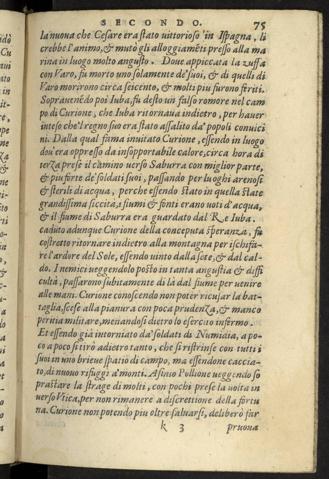 SECONDO. 75
la nuoua che Cesare era stato uittorioso in Ispagna, li
crebbe l'animo, & mutò gli alloggiamẽti presso alla ma
rina in luogo molto angusto. Doue appiccata la zuffa
con Varo, fu morto uno solamente de' suoi, & di quelli di
Varo morirono circa seicento, & molti piu furono firiti.
Soprauenẽdo poi Iuba, fu desto un falso romore nel cam
po di Curione, che Iuba ritornaua indietro, per hauer
inteso che'l regno suo era stato assalito da' popoli conuici
ni. Dalla qual fama inuitato Curione, essendo in luogo
dou' era oppresso da insopportabile calore, circa hora di
terza prese il camino uerso Saburra con miglior parte,
& piu forte de' soldati suoi, passando per luoghi arenosi
& sterili di acqua, perche essendo stato in quella state
grandissima siccità, i fiumi & fonti erano uoti d'acqua,
& il fiume di Saburra era guardato dal Re Iuba.
caduto adunque Curione della conceputa speranza, fu
costretto ritornare indietro alla montagna per ischifa-
re l'ardore del Sole, essendo uinto dalla sete, & dal cal-
do. I nemici ueggendolo posto in tanta angustia & diffi
cultà, passarono subitamente di là dal fiume per uenire
alle mani. Curione conoscendo non poter ricusar la bat-
taglia, scese alla pianura con poca prudenza, & manco
peritia militare, menandosi dietro lo esercito infermo.
Et essendo già intorniato da' soldati di Numidia, a po-
co a poco si tirò adietro tanto, che si ristrinse con tutti i
suoi in uno brieue spatio di campo, ma essendone caccia-
to, di nuouo rifuggì a' monti. Asinio Pollione ueggendo so
prastare la strage di molti, con pochi prese la uolta in
uerso Vtica, per non rimanere a discrettione della fortu
na. Curione non potendo piu oltre saluarsi, deliberò far
k 3 pruoua